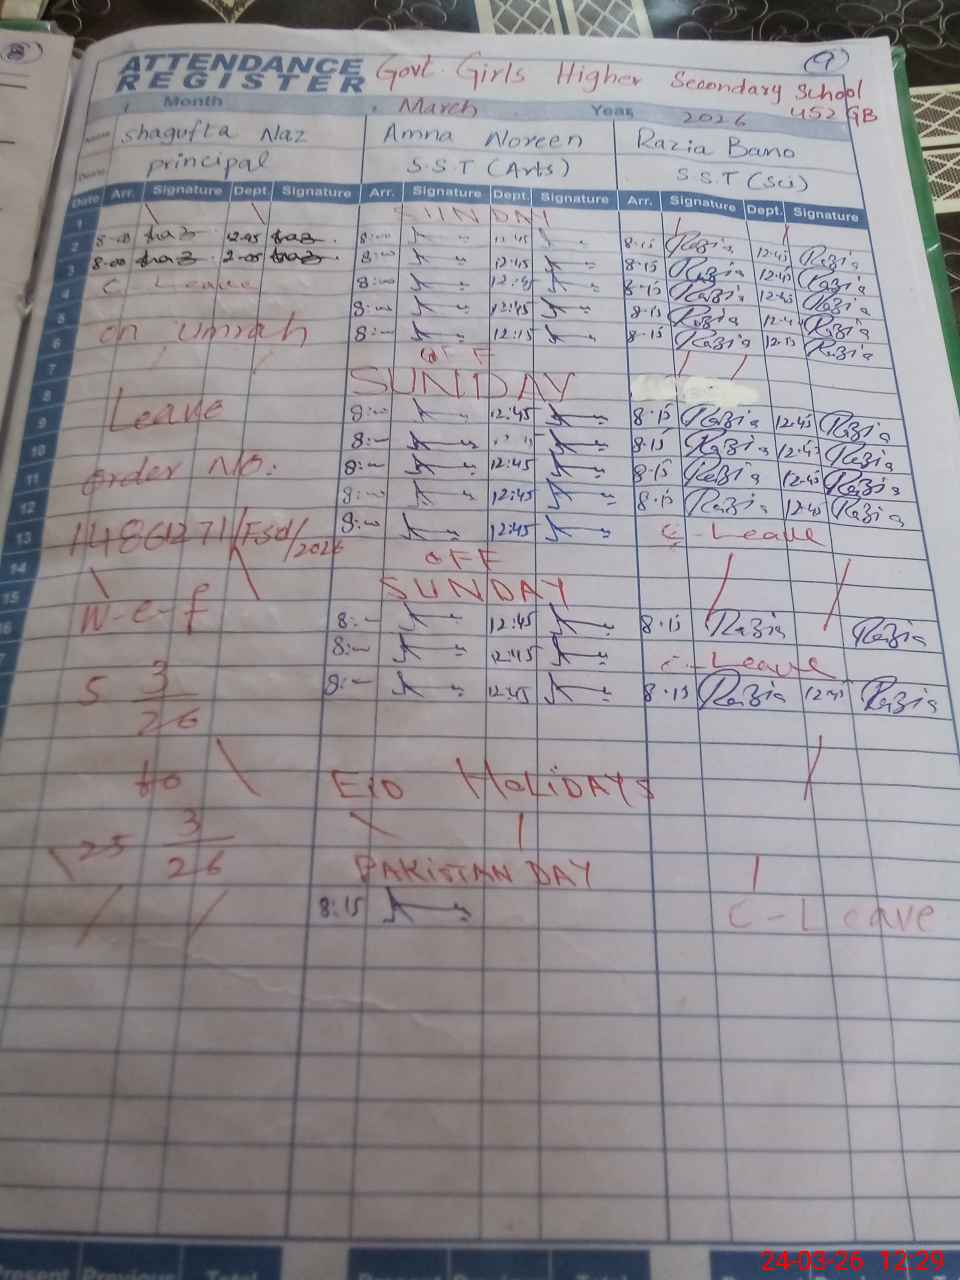 8
9
ATTENDANCE REGISTER Govt. Girls Higher Secondary School
452 GB
Month March Year 2026
Name Shagufta Naz Amna Noreen Razia Bano
principal S.S.T (Arts) S.S.T (Sci)
Date Arr. Signature Dept. Signature Arr. Signature Dept. Signature Arr. Signature Dept. Signature
1 SUNDAY
2 8-00 12-45 8:00 12:45 8-15 Razia 12-45 Razia
3 8-00 2-00 8:00 12:45 8-15 Razia 12-45 Razia
4 C Leave 8:00 12:45 8-15 Razia 12-45 Razia
5 8:00 12:45 8-15 Razia 12-45 Razia
6 on umrah 8:00 12:15 8-15 Razia 12-15 Razia
7 OFF
8 SUNDAY
9 Leave 8:00 12:45 8-15 Razia 12-45 Razia
10 8:00 8-15 Razia 12-45 Razia
11 order No. 8:00 12:45 8-15 Razia 12-45 Razia
12 8:00 12:45 8-15 Razia 12-45 Razia
13 14861271/Fsd/2026 8:00 12:45 C-Leave
14 OFF
15 SUNDAY
16 W-e-f 8:00 12:45 8-15 Razia Razia
8:00 12:45 C-Leave
5 3/26 8:00 12:45 8-15 Razia 12-45 Razia
to EID HOLiDAYS
25 3/26 PAKISTAN DAY
8:15 C-Leave
Present Present Total
24-03-26 12:29